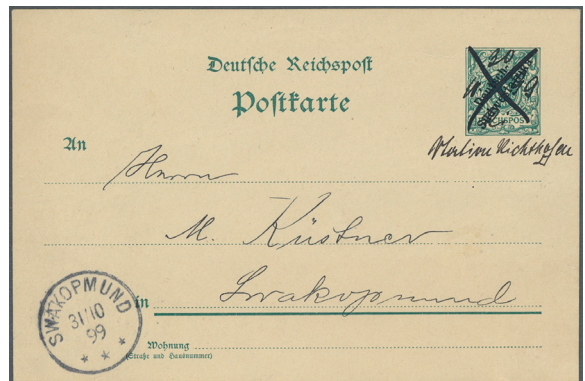 Deutsche Reichspost
Postkarte
30
REICHSPOST
Station Richthofen
An
Herrn
M. Küstner
in Swakopmund
SWAKOPMUND
31/10
99
* * *
Wohnung
(Straße und Hausnummer)